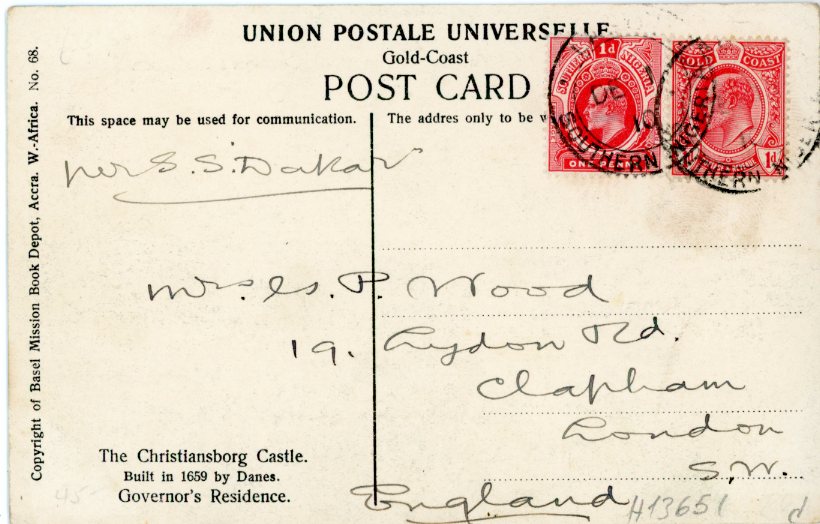 UNION POSTALE UNIVERSELLE
Gold-Coast
POST CARD
This space may be used for communication.
The addres only to be w
SOUTHERN NIGERIA
1d
ONE PENNY
GOLD COAST
1d
DE
10
SOUTHERN NIGERIA
SOUTHERN NIGERIA
per S. S. Dakar
Mrs. P. Wood
19. Lydon Rd.
Clapham
London
S.W.
England
The Christiansborg Castle.
Built in 1659 by Danes.
Governor's Residence.
Copyright of Basel Mission Book Depot, Accra. W.-Africa. No. 68.
H13651
d
45